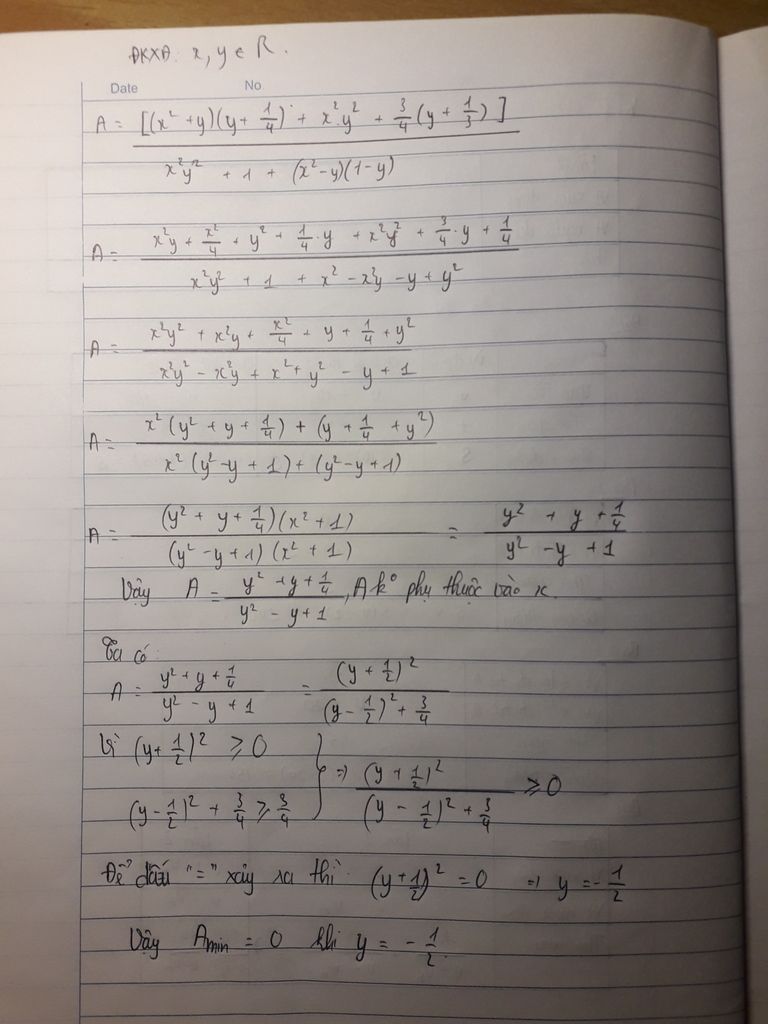 ĐKXĐ: x, y ∈ R.
Date No
A = [(x² + y)(y + 1/4) + x².y² + 3/4(y + 1/3)] / x²y² + 1 + (x² - y)(1 - y)
A = x²y + x²/4 + y² + 1/4.y + x²y² + 3/4.y + 1/4 / x²y² + 1 + x² - x²y - y + y²
A = x²y² + x²y + x²/4 + y + 1/4 + y² / x²y² - x²y + x² + y² - y + 1
A = x²(y² + y + 1/4) + (y + 1/4 + y²) / x²(y² - y + 1) + (y² - y + 1)
A = (y² + y + 1/4)(x² + 1) / (y² - y + 1)(x² + 1) = y² + y + 1/4 / y² - y + 1
Vậy A = y² + y + 1/4 / y² - y + 1, A k° phụ thuộc vào x.
Ta có:
A = y² + y + 1/4 / y² - y + 1 = (y + 1/2)² / (y - 1/2)² + 3/4
Vì (y + 1/2)² ≥ 0
(y - 1/2)² + 3/4 ≥ 3/4 } => (y + 1/2)² / (y - 1/2)² + 3/4 ≥ 0
Để dấu "=" xảy ra thì (y + 1/2)² = 0 => y = -1/2
Vậy Amin = 0 khi y = -1/2.